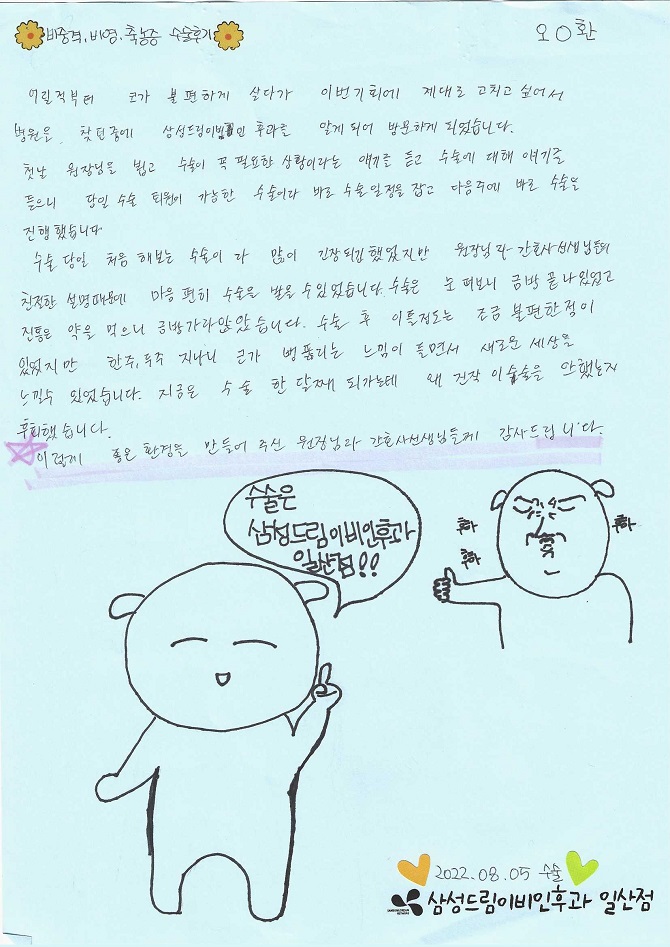 비중격, 비염, 축농증 수술후기
오O환
어릴적부터 코가 불편하게 살다가 이번기회에 제대로 고치고 싶어서
병원을 찾던중에 삼성드림이비인후과를 알게 되어 방문하게 되었습니다.
첫날 원장님을 뵙고 수술이 꼭 필요한 상황이라는 얘기를 듣고 수술에 대해 얘기를
들으니 당일 수술 퇴원이 가능한 수술이라 바로 수술일정을 잡고 다음주에 바로 수술을
진행했습니다
수술 당일 처음 해보는 수술이라 많이 긴장되긴했었지만 원장님과 간호사선생님들의
친절한 설명때문에 마음 편히 수술을 받을 수 있었습니다. 수술은 눈 떠보니 금방 끝나있었고
진통은 약을 먹으니 금방가라앉았습니다. 수술 후 이틀정도는 조금 불편한점이
있었지만 한주, 두주 지나니 코가 뻥뚫리는 느낌이 들면서 새로운 세상을
느낄수 있었습니다. 지금은 수술 한 달째 되가는데 왜 진작 이 수술을 안했는지
후회했습니다.
이렇게 좋은 환경을 만들어 주신 원장님과 간호사선생님들께 감사드립니다.
수술은
삼성드림이비인후과
일산점!!
후하
후하
후하
2022.08.05 수술
삼성드림이비인후과 일산점